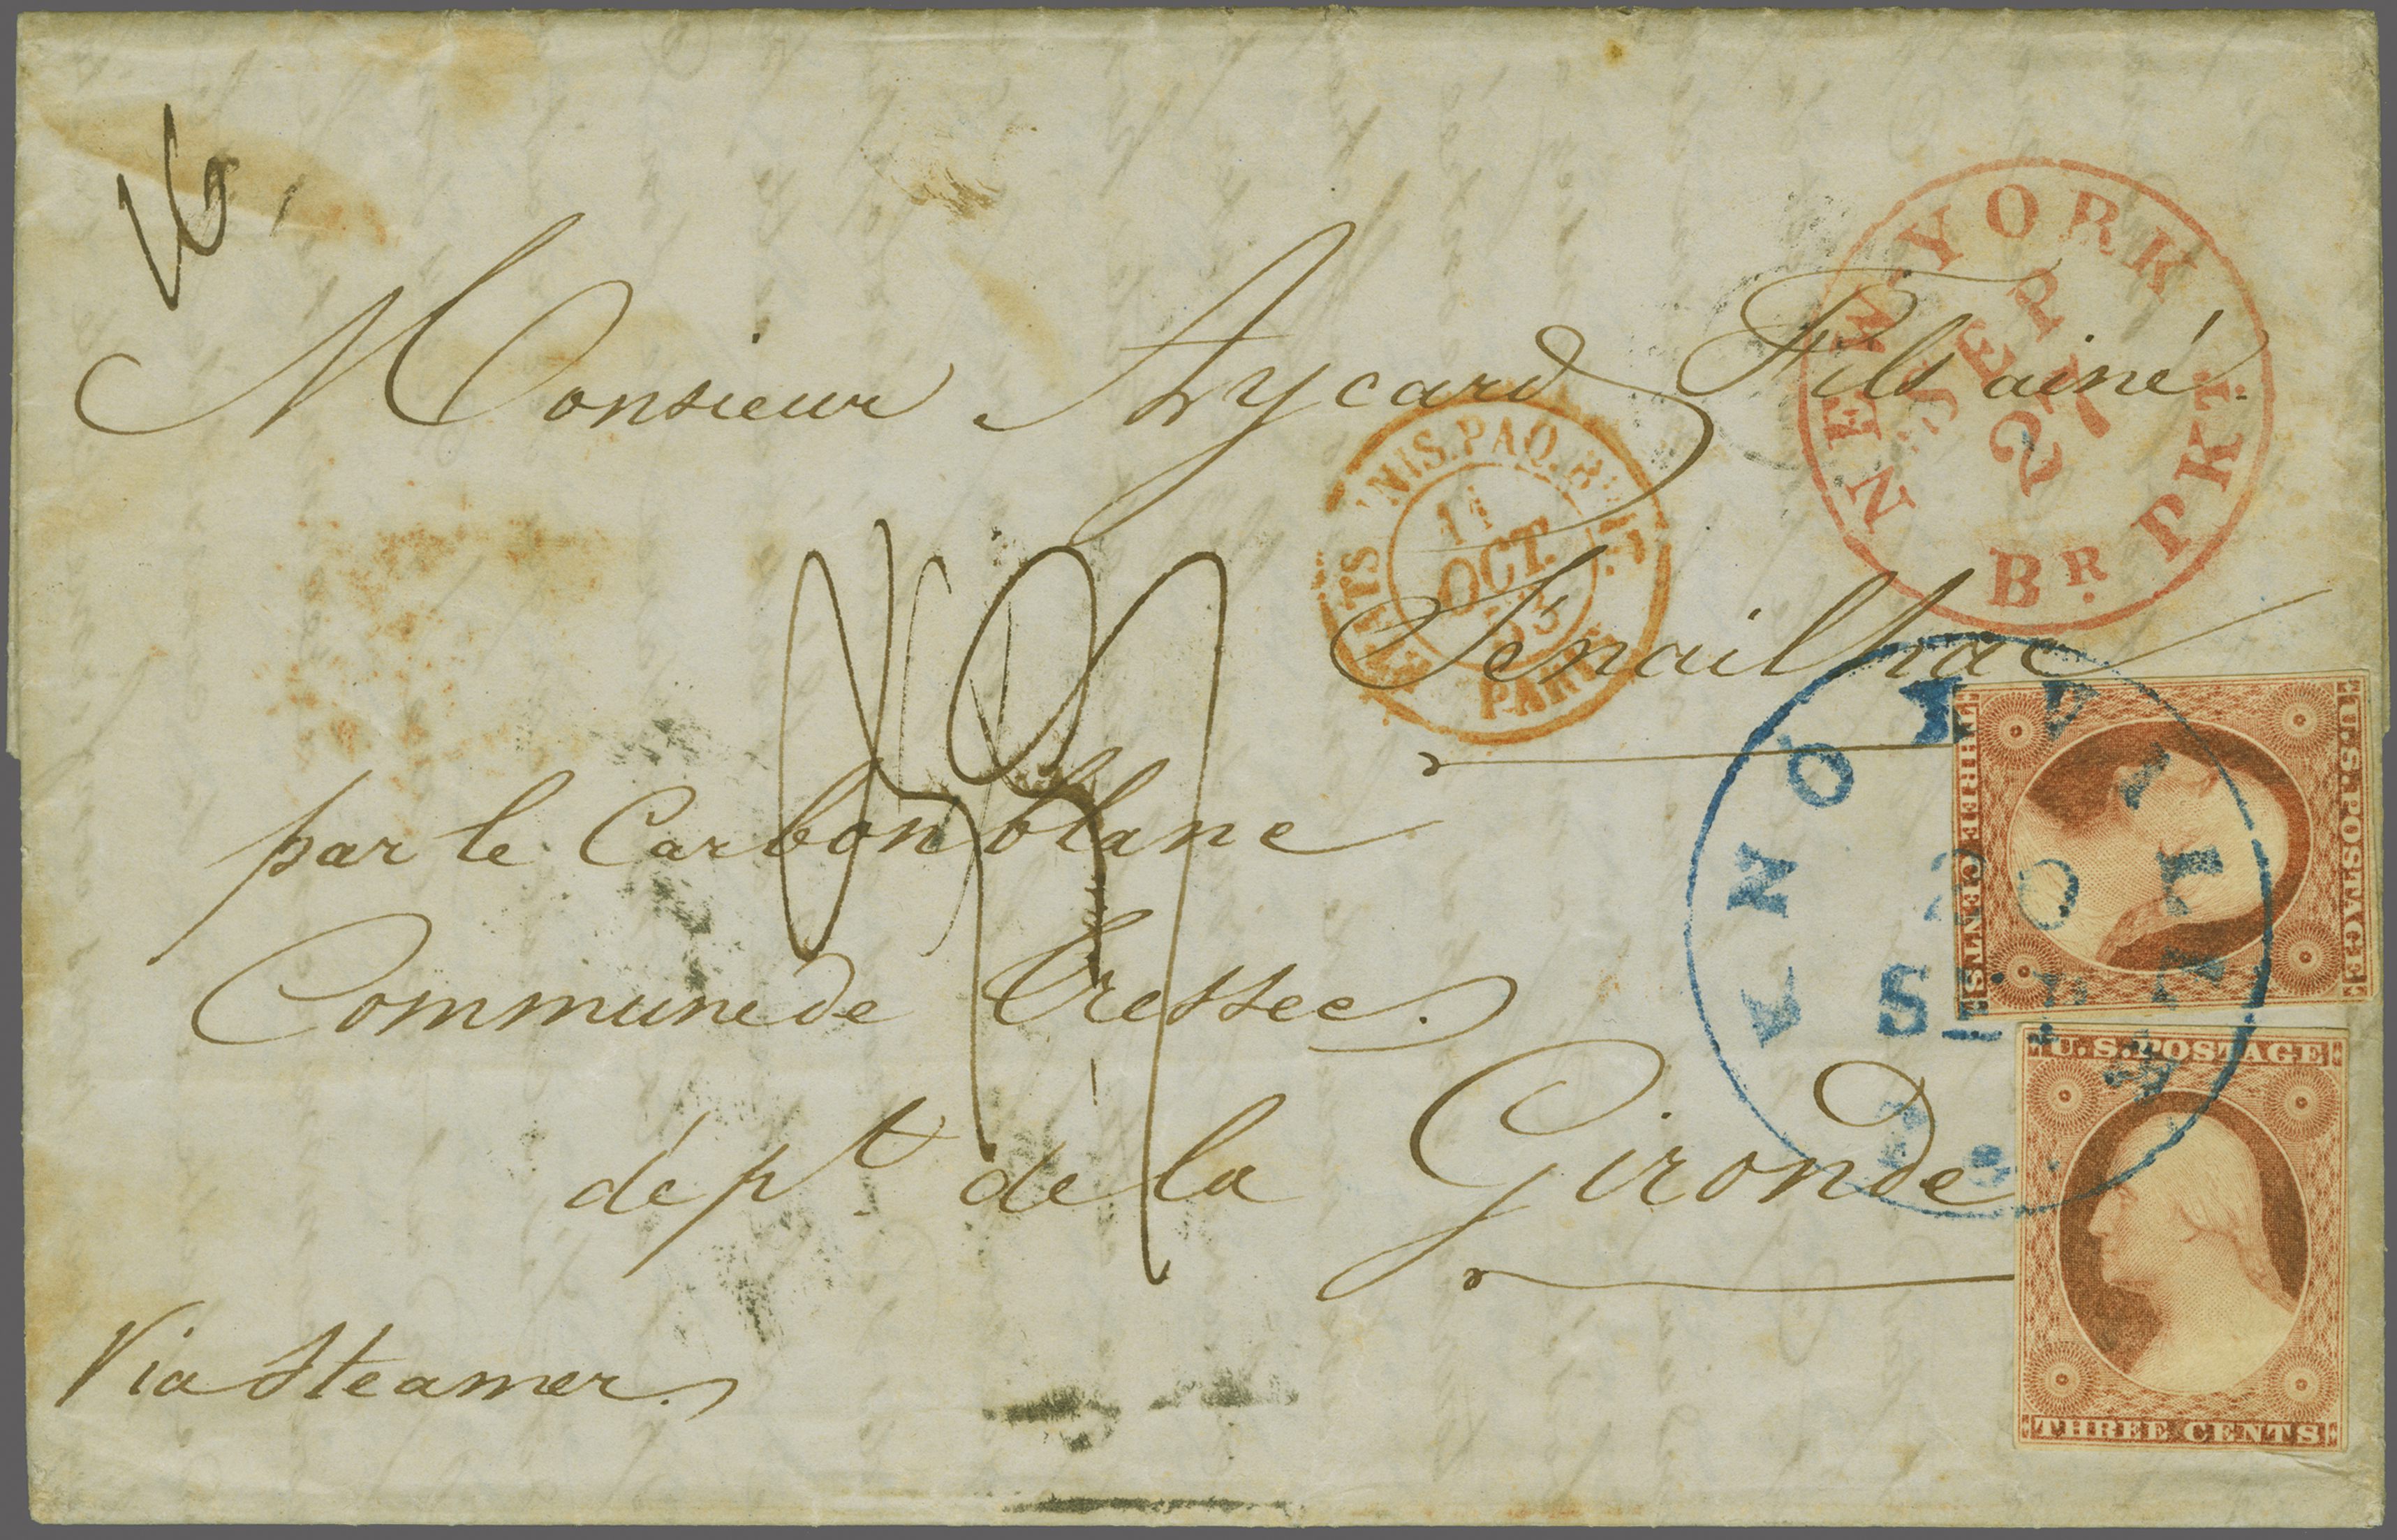 16
Monsieur Aycard Fils ainé
Senailhac
par le Carbonblanc
Commune de Tressec.
dépt. de la Gironde
Via Steamer
NEW-YORK
SEP
27
BR. PKT.
11
OCT.
53
PARIS
KNOXVILLE
20
SEP
U.S. POSTAGE
THREE CENTS
U.S. POSTAGE
THREE CENTS